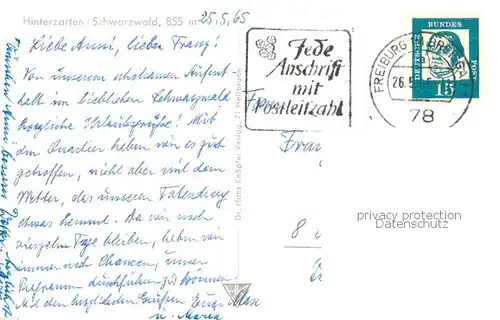 Hinterzarten/Schwarzwald, 855 m
25.5.65
Liebe Anni, lieber Franz!
Von unserem erholsamen Aufent
halt im lieblichen Schwarzwald
herzliche Urlaubsgrüße! Mit
dem Quartier haben wir es gut
getroffen, nicht aber mit dem
Wetter, das unseren Tatendrang
etwas hemmt. Da wir noch
vierzehn Tage bleiben, haben wir
immer noch Chancen, unser
Programm durchführen zu können.
Mit den herzlichsten Grüßen Euer Max
u. Maria
Dr. Hans Knöpfer Verlag, 71 Heilbronn
Jede
Anschrift
mit
Postleitzahl
FREIBURG
26.5.
78
DEUTSCHE
BUNDES
POST
15
Fran
8
privacy protection
watermark